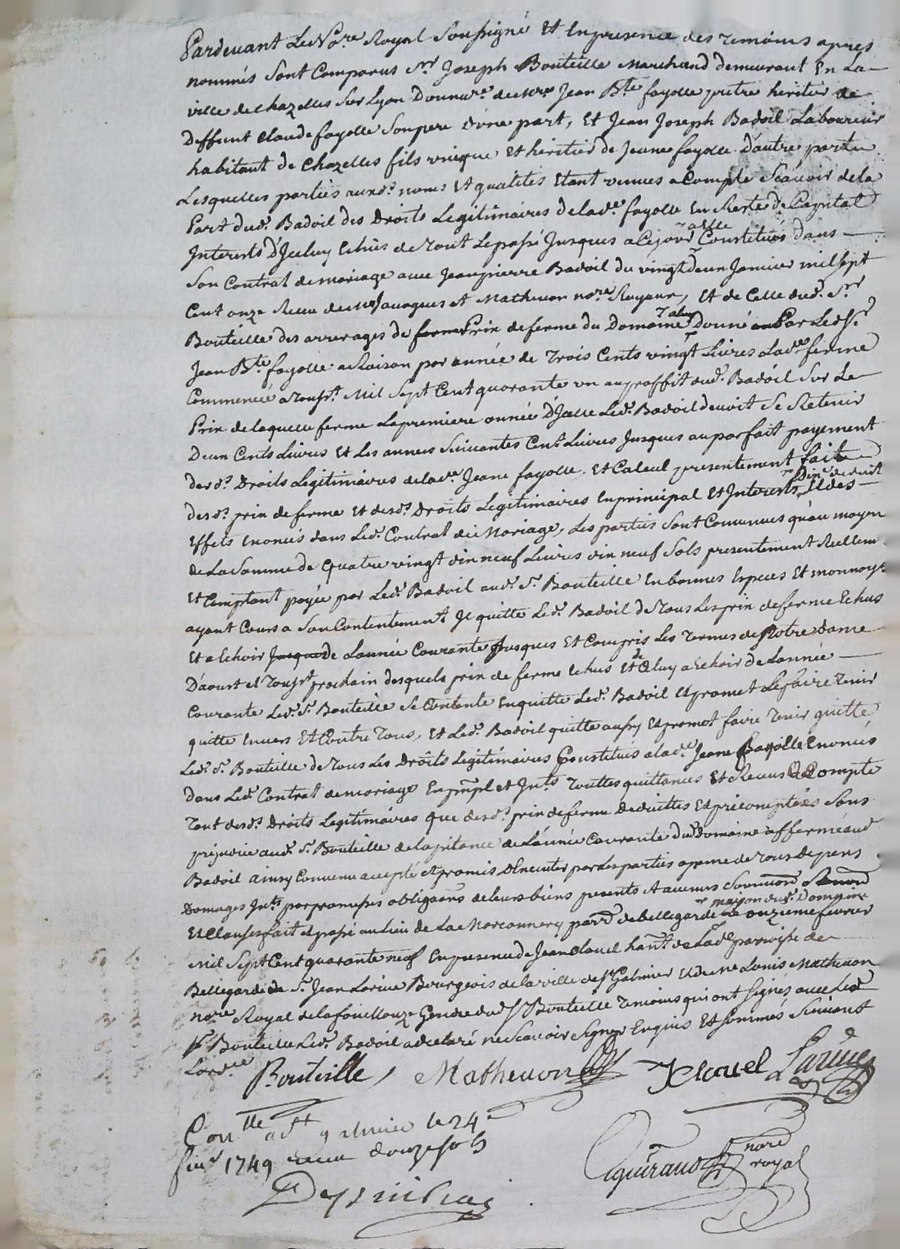 Pardevant Le No.re Royal Soussigné Et En presence des temoins apres
nommés Sont Comparus Sr. Joseph Bouteille Marchand demeurant En La
ville de chazelles Sur Lyon Donnre. de Mre. Jean Bte fayolle pretre heritier de
Deffunt claude fayolle Son pere d'une part, Et Jean Joseph Badoil Laboureur
habitant de Chazelles fils unique Et heritier de Jeane fayolle D'autre part
Lesquelles parties auxd. noms Et qualites Etant venues a Compte Scavoir de la
Part dud. Badoil des Droits Legitimaires de lad. fayolle En Reste de Capital
Interets D'Iceluy Echus de tout Le passé Jusques a Cejourd. a elle Constitués dans
Son Contrat de mariage avec Jean pierre Badoil du vingt deux Janvier mil Sept
Cent onze Receu de Mes Et Mathevon nores Royaux, Et de Celle dud. Sr
Bouteille des arrerages de Prix de ferme du Domaine a luy Donné Par Led. Sr.
Jean Bte fayolle a Raison par année de Trois Cents vingt Livres Lad. ferme
Commencé a Toust. Mil Sept Cent quarante un au proffit dud. Badoil Sur Le
Prix de laquelle ferme La premiere année D'Icelle Led. Badoil devoit Se Retenir
Deux Cents Livres Et Les annees Suivantes Cent Livres Jusques au parfait payement
desd. Droits Legitimaires de lad. Jeane fayolle. Et Calcul presentement fait
desd. prix de ferme Et desd. Droits Legitimaires En principal Et Interets, Et des
Effets Enoncés dans Led. Contrat de Mariage, Les parties Sont Convenues qu'au moyen
de La Somme de quatre vingt dix neuf Livres dix neuf Sols presentement Reellem.
Et Comptant payée par Led. Badoil aud. Sr. Bouteille En bonnes Especes Et monnoye
ayant Cours a Son Contentement Il quitte Led. Badoil de Tous Les prix de ferme Echus
Et a Echoir de L'année Courante Jusques Et Compris Les Termes de Notre dame
D'aoust Et Toust. prochain desquels prix de ferme Echus Et de Celuy a Echoir de L'année
Courante Led. Sr. Bouteille Se Contente En quitte Led. Badoil Et promet Le faire Tenir
quitte Envers Et Contre Tous, Et Led. Badoil quitte aussy Et promet faire Tenir quitte
Led. Sr. Bouteille de Tous Les Droits Legitimaires Constitués a lad. Jeane fayolle Enoncés
dans Led. Contrat de mariage En ppl. et Jnts. Touttes quittances Et Receus a Compte
Tant desd. Droits Legitimaires que desd. prix de ferme Deduittes Et precomptées Sans
prejudice aud. Sr. Bouteille de la pitance de L'année Courante du Domaine affermé aud.
Badoil ainsy Convenu accepté Et promis Executer par Les parties a peine de Tous Depens
Domages Jnts. par promesses obligaons de leurs biens presents Et avenirs
Et Clauses fait Et passé au Lieu de La parr. de bellegarde maison dud. Domaine Le onzieme fevrier
Mil Sept Cent quarante neuf En presence de Jean Clauel habt. de Lad. parroisse de
Bellegarde Sr. Jean Larive Bourgeois de la ville de St. Galmier Et de Me Louis Mathevon
nore. Royal de la fouillouze Gendre dud. Sr. Bouteille Temoins qui ont Signés avec Led.
Sr. Bouteille Led. Badoil a declaré ne Scavoir Signer Enquis Et Sommés Suivant
L'ord.ce
Bouteille, Mathevon J Clauel Larive
Conlle a le 24e
fev. 1749 Receu douze sols
nore royal